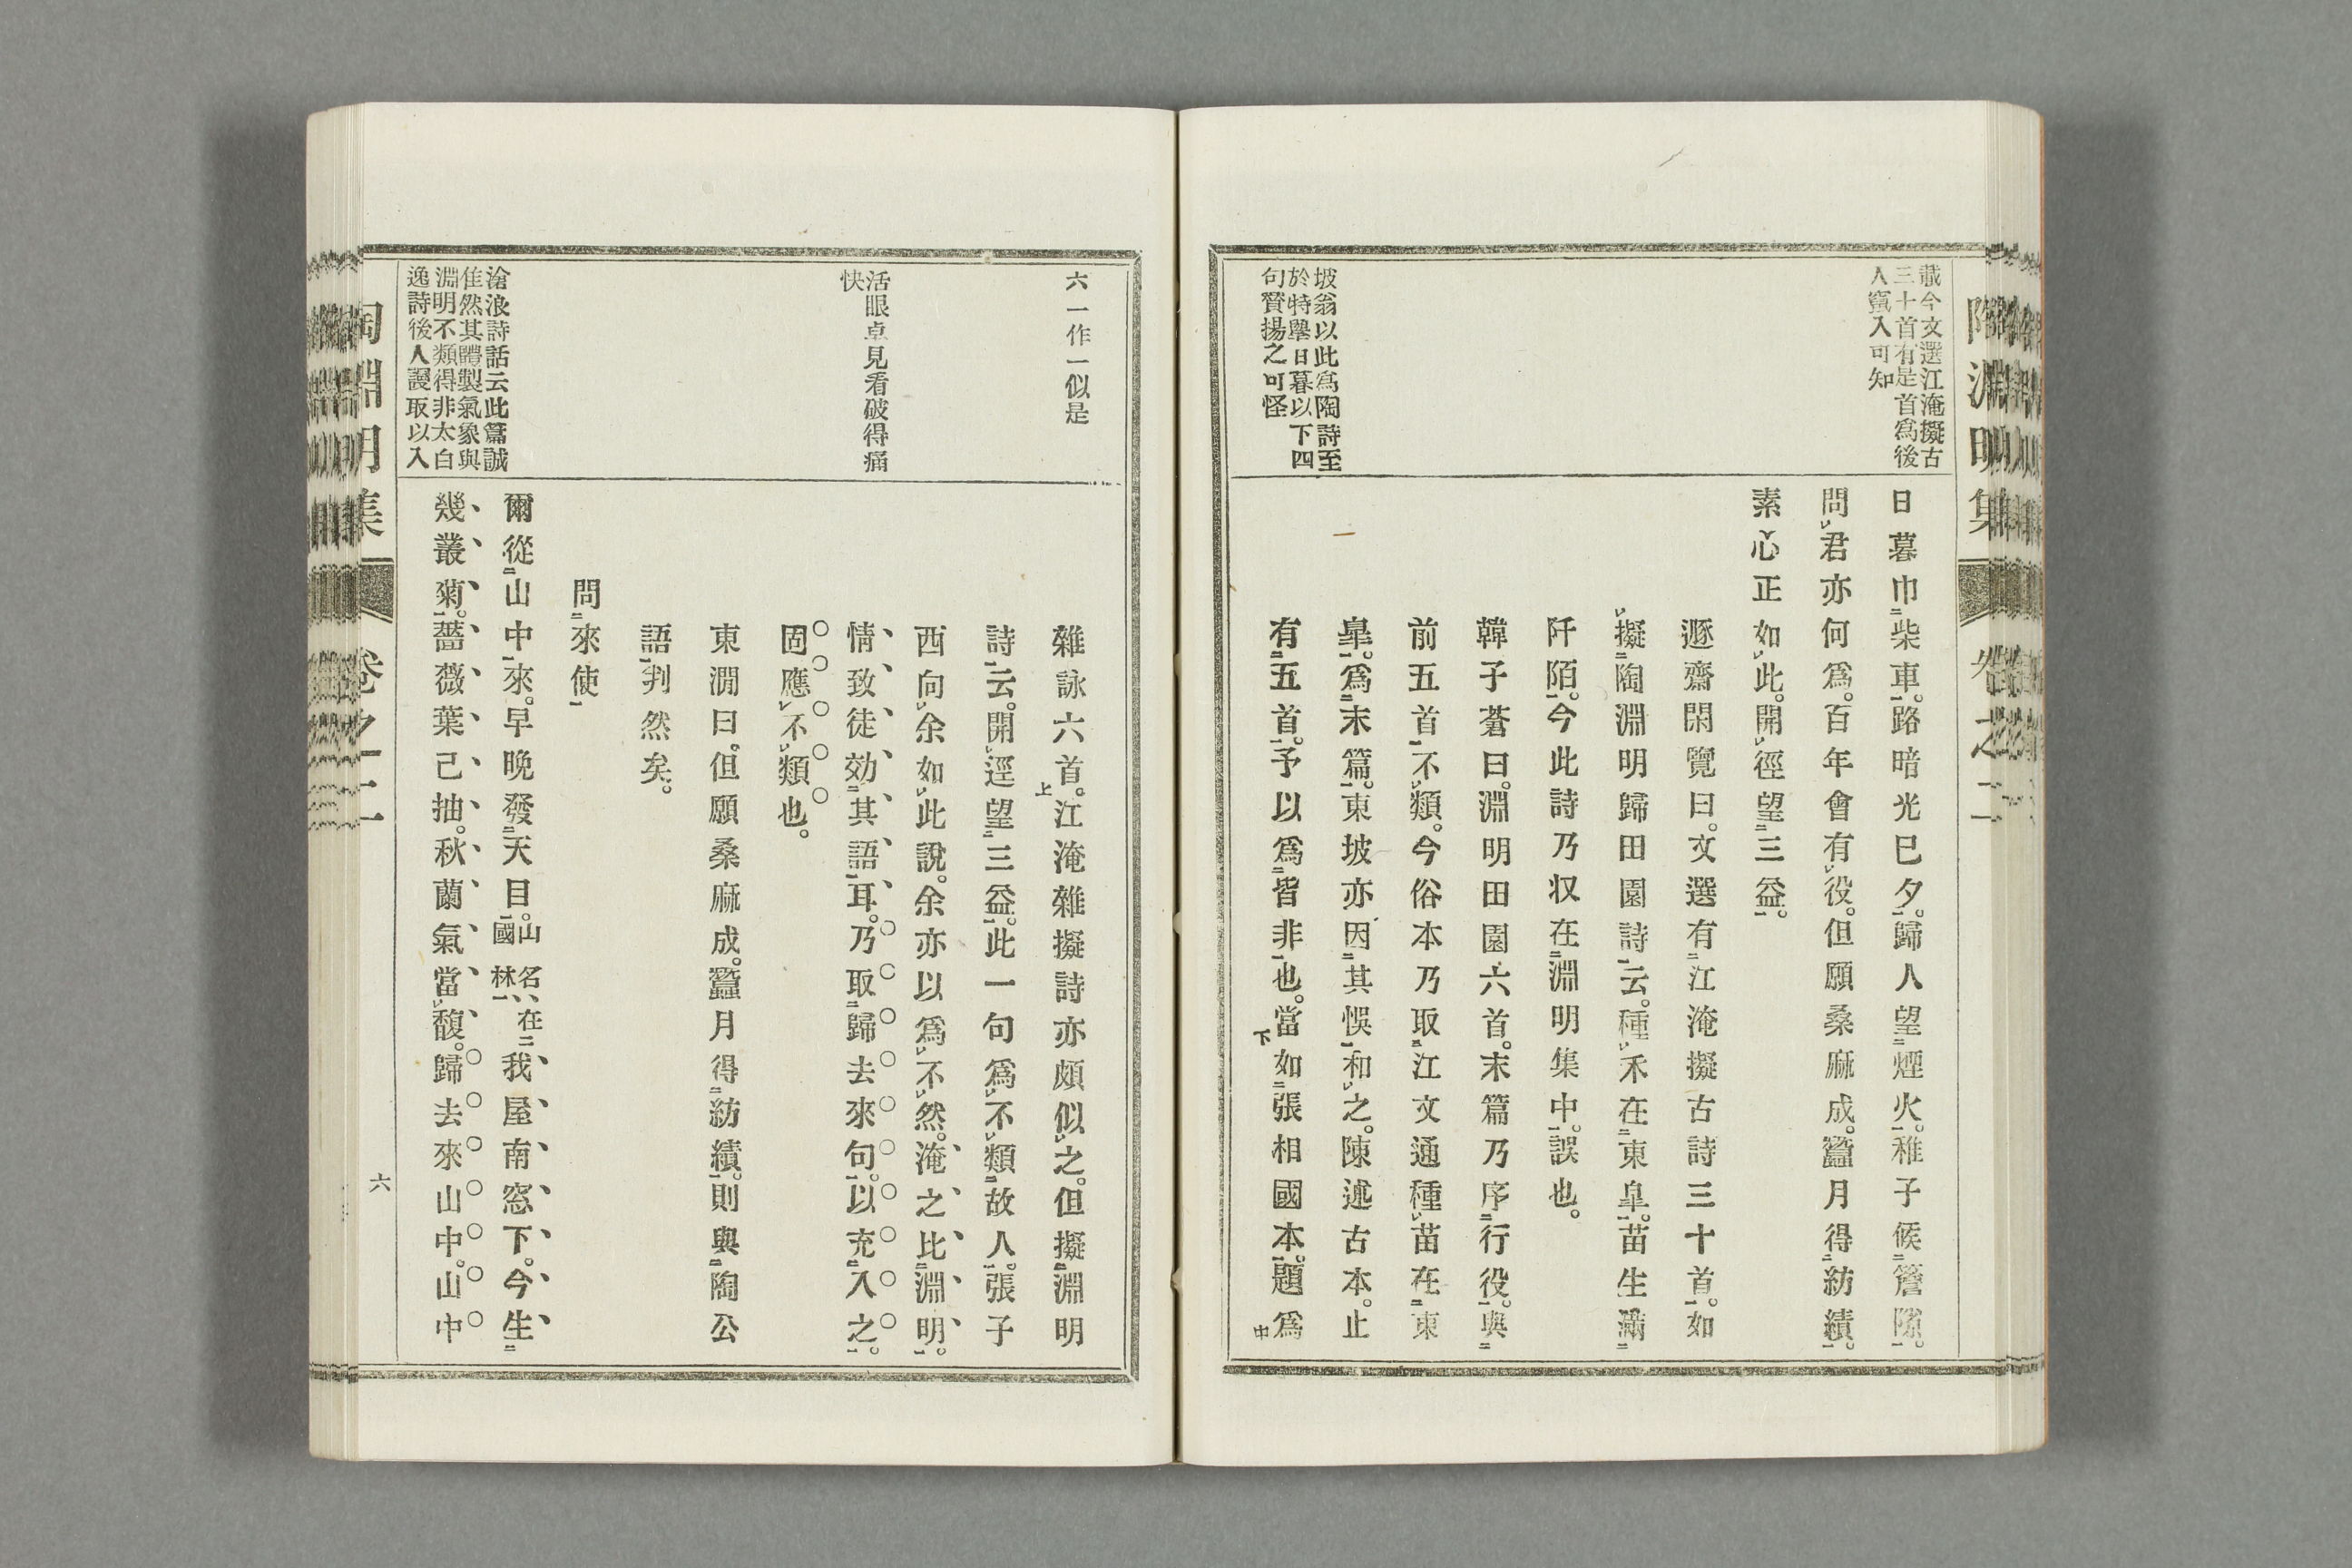 陶淵明集 卷之二
載今文選江淹擬古
三十首有是首爲後
人竄入可知
坡翁以此爲陶詩至
於特舉日暮以下四
句贊揚之可怪
日暮巾㆓柴車㆒。路暗光已夕。歸人望㆓煙火㆒。稚子候㆓簷隙㆒。
問レ君亦何爲。百年會有レ役。但願桑麻成。蠶月得㆓紡績㆒。
素心正如レ此。開レ徑望㆓三益㆒。
遯齋閑覽曰。文選有㆓江淹擬古詩三十首㆒。如
レ擬㆓陶淵明歸田園詩㆒云。種レ禾在㆓東皐㆒。苗生滿㆓
阡陌㆒。今此詩乃収在㆓淵明集中㆒。誤也。
韓子蒼曰。淵明田園六首。末篇乃序㆓行役㆒。與㆓
前五首㆒不レ類。今俗本乃取㆓江文通種レ苗在㆓東
皐㆒。爲㆓末篇㆒。東坡亦因㆓其悞㆒和レ之。陳述古本。止
有㆓五首㆒。予以爲㆓皆非㆒也。當㆘如㆓張相國本㆒。題爲㆗
六一作一似是
活眼卓見看破得痛
快
滄浪詩話云此篇誠
佳然其體製氣象與
淵明不類得非太白
逸詩後人謾取以入
雜詠六首㆖。江淹雜擬詩亦頗似レ之。但擬㆓淵明
詩㆒云。開レ逕望㆓三益㆒。此一句爲レ不レ類㆓故人㆒。張子
西向レ余如レ此說。余亦以爲レ不レ然。淹之比㆓淵明㆒。
情致徒効㆓其語㆒耳。乃取㆓歸去來句㆒。以充㆓入之㆒。
固應レ不レ類也。
東澗曰。但願桑麻成。蠶月得㆓紡績㆒。則與㆓陶公
語㆒判然矣。
問㆓來使㆒
爾從㆓山中㆒來。早晚發㆓天目㆒。山名、在㆓國林㆒、我屋南窓下。今生㆓
幾叢菊㆒。薔薇葉已抽。秋蘭氣當レ馥。歸去來山中。山中
陶淵明集 卷之二
六